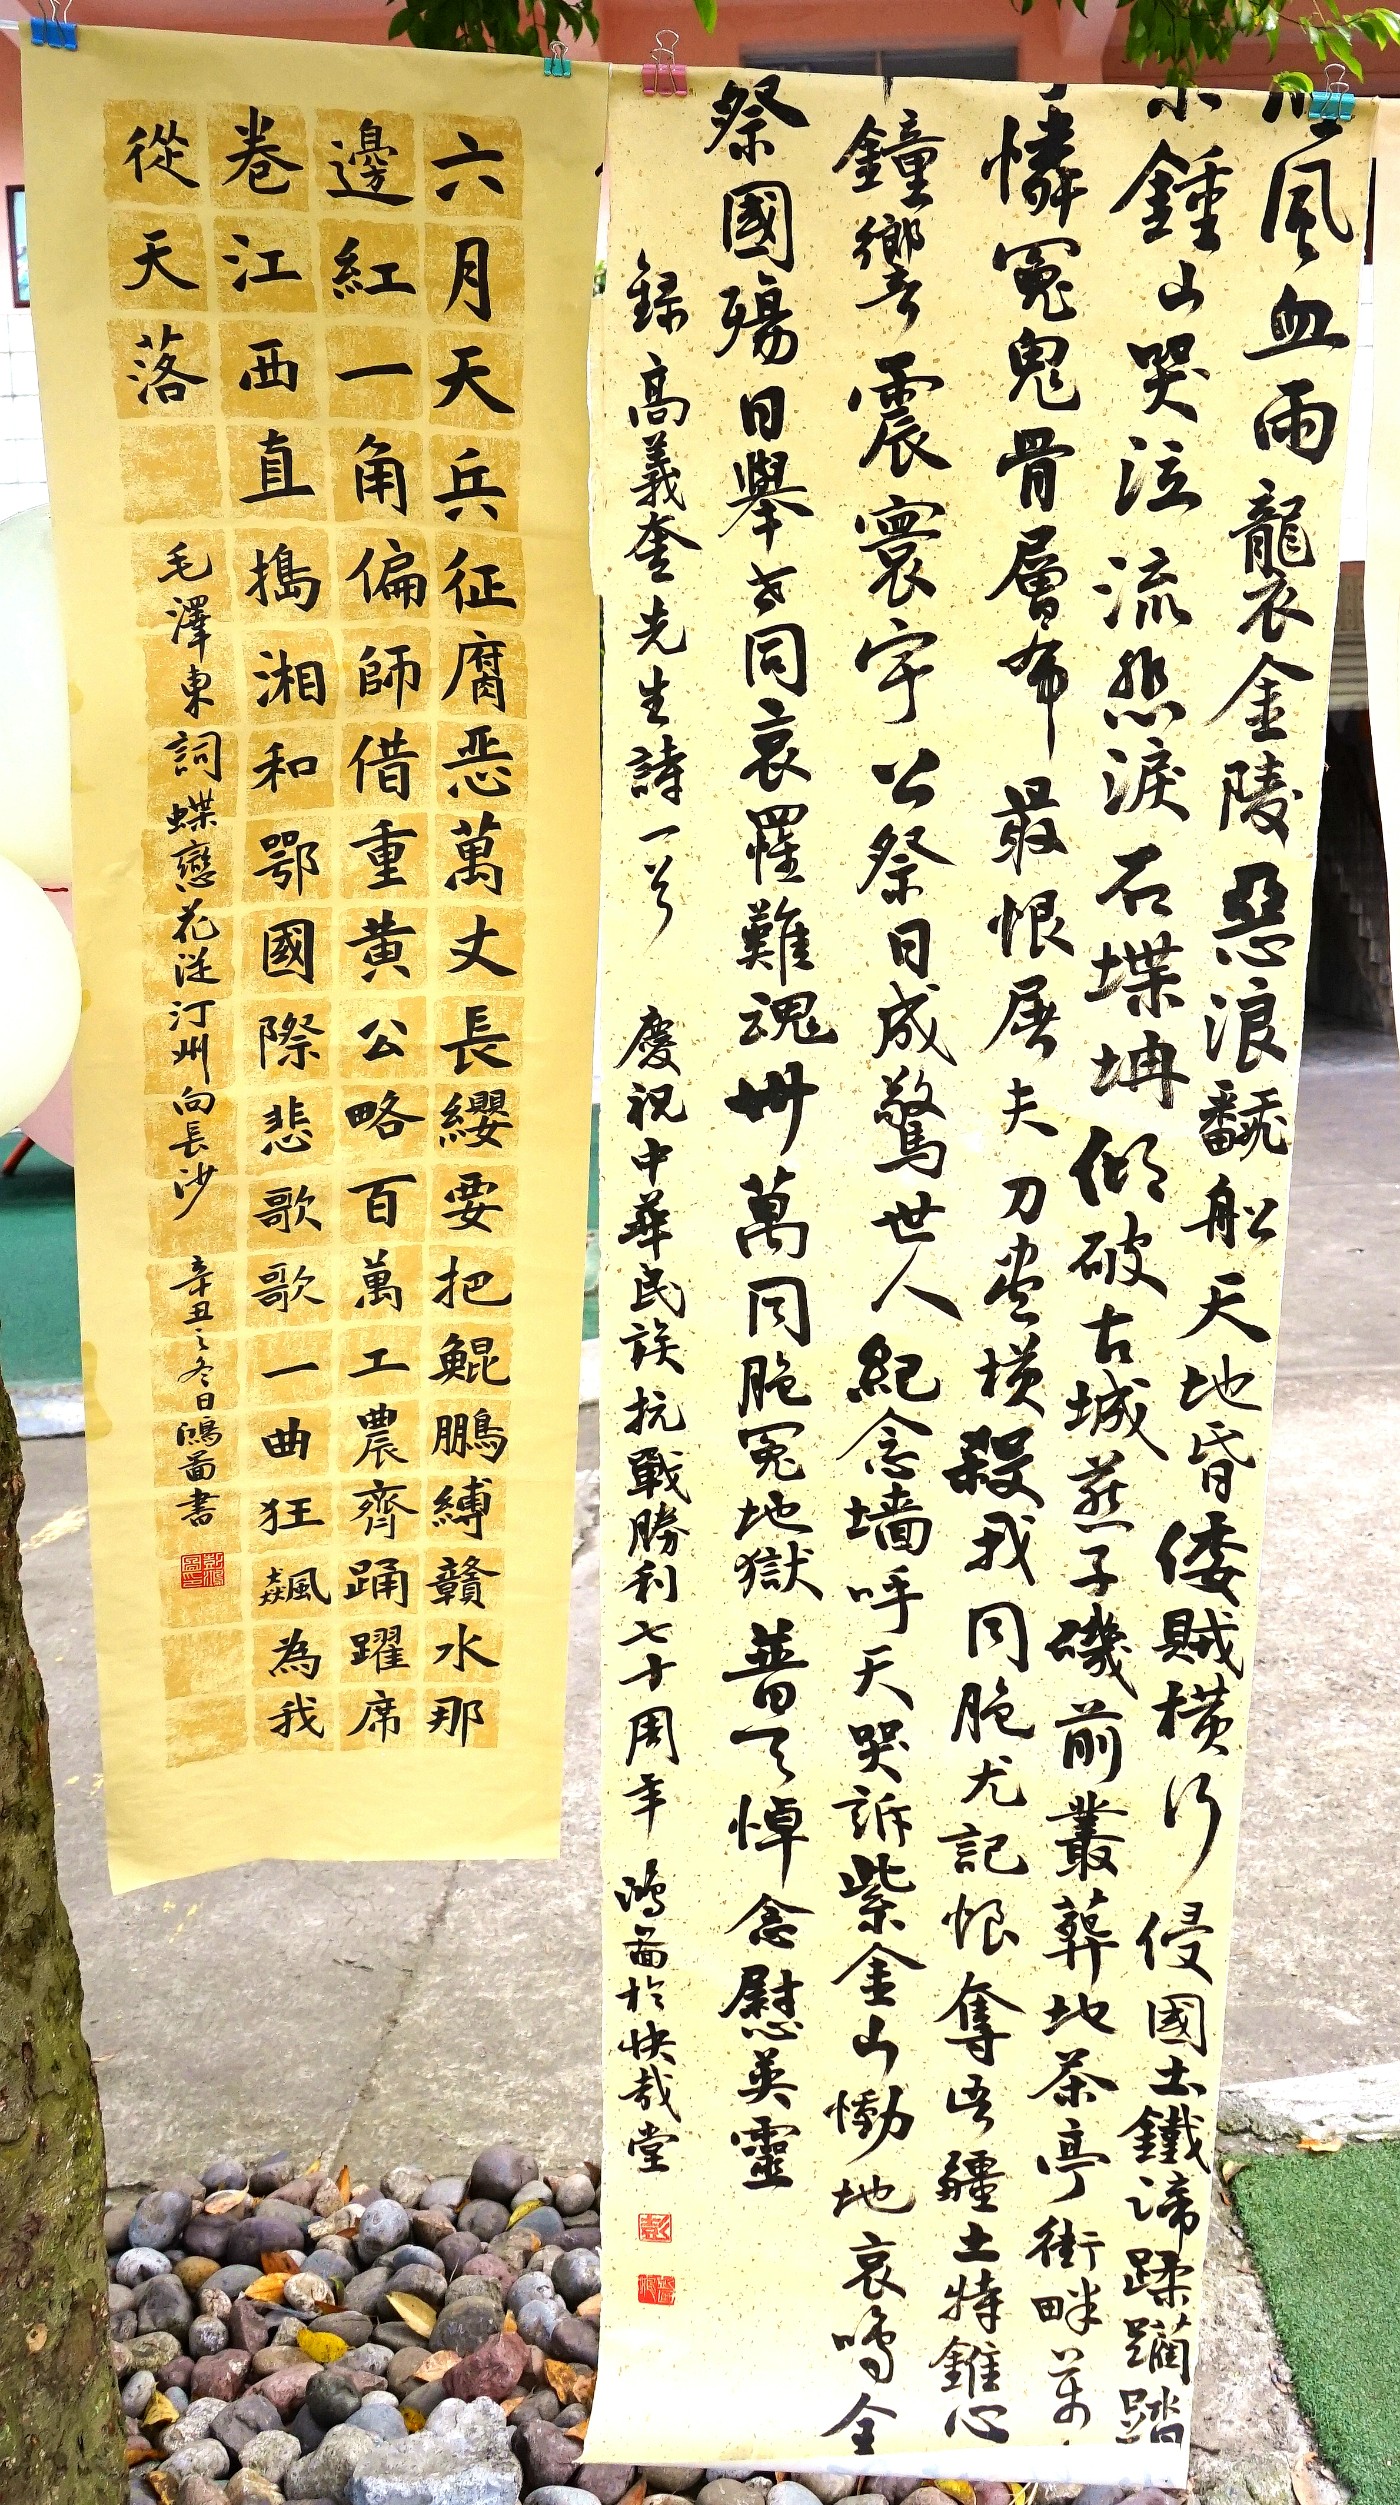 六月天兵征腐恶萬丈長纓要把鯤鵬縛贛水那
邊紅一角偏師借重黄公略百萬工農齊踊躍席
巻江西直搗湘和鄂國際悲歌歌一曲狂飈為我
從天落
毛澤東詞蝶戀花從汀州向長沙 辛丑之冬日鴻圖書
風血雨襲衣金陵惡浪翻船天地昏倭賊橫行侵國土鐵蹄蹂躪踏
鍾山哭泣流悲淚石堞坍傾破古城燕子磯前叢葬地茶亭街畔萬
憐冤鬼骨層布最恨屠夫刀堂橫殺我同胞尤記恨奪吾疆土特錐心
鐘響震寰宇公祭日成驚世人紀念墙呼天哭訴紫金山慟地哀鳴全
祭國殤日舉世同哀罹難魂卅萬同胞冤地獄普天悼念慰英靈
録高義奎先生詩一首 慶祝中華民族抗戰勝利七十周年 鴻圖於快哉堂